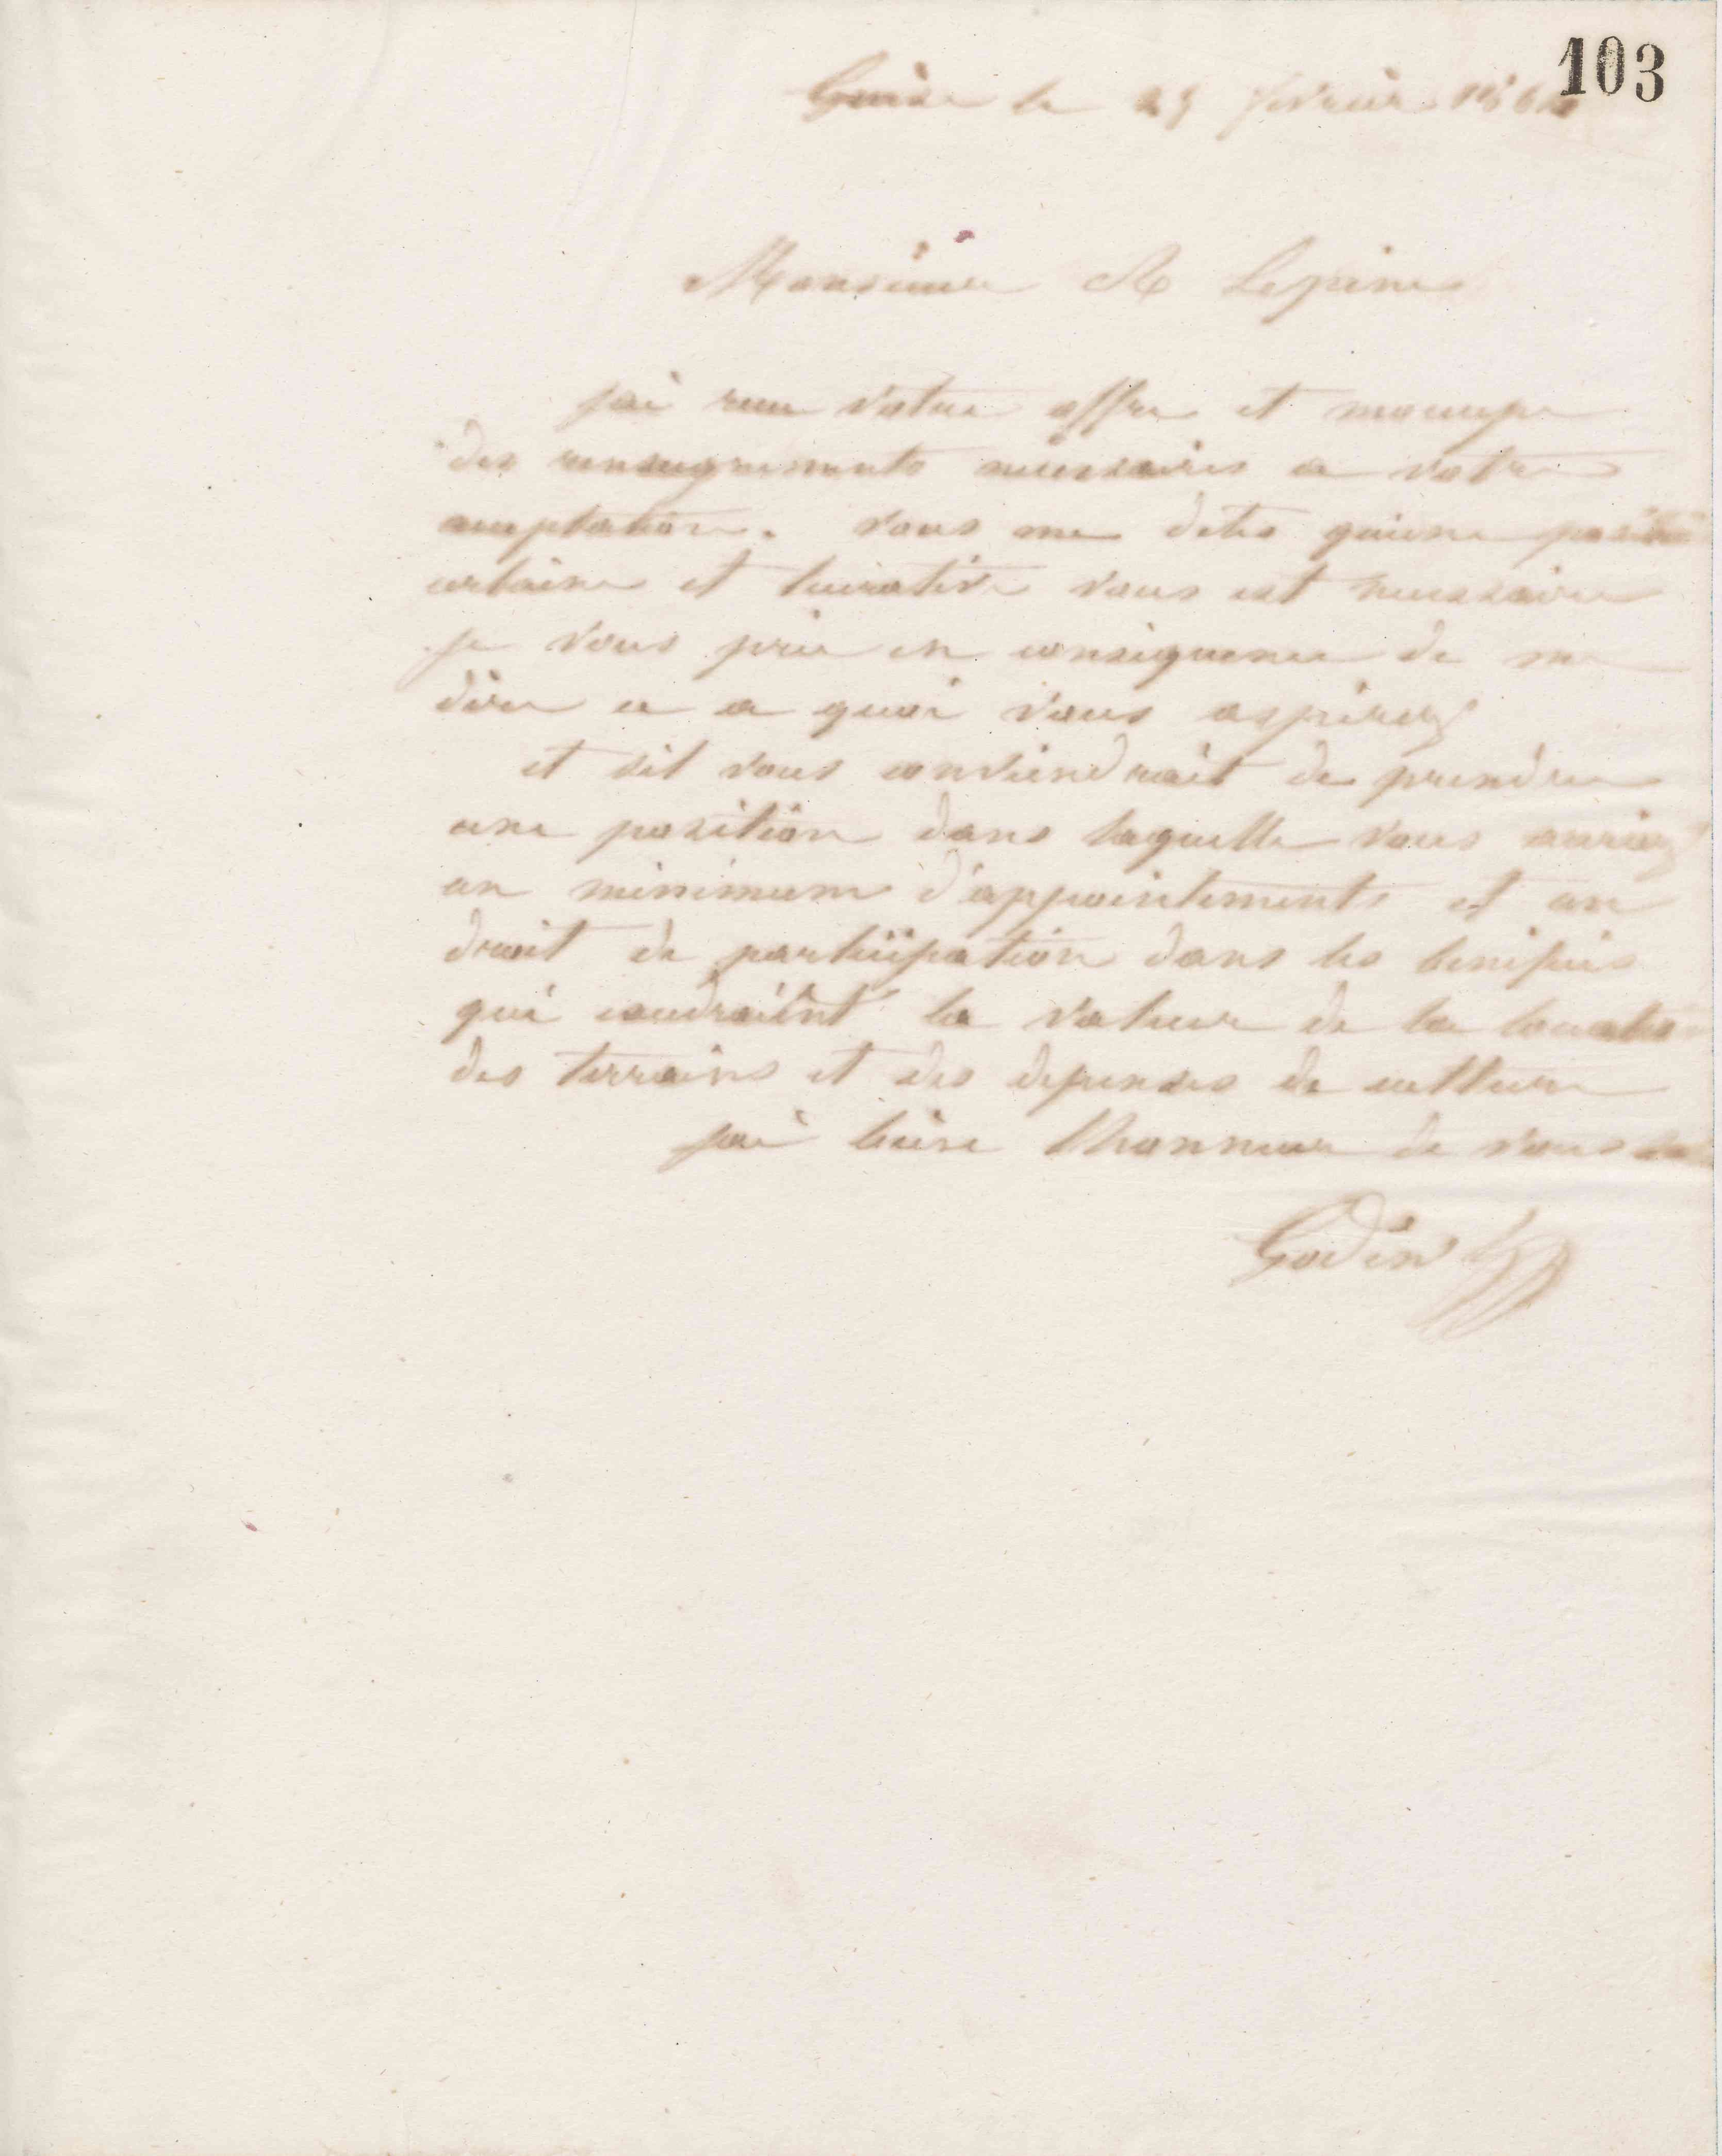 103
Guise le 25 fevrier 186
Monsieur A Lepine
jai recu votre offre et moccupe
des renseignements necessaires a votre
acceptation. vous me dites quune position
certaine et lucrative vous est necessaire
je vous prie en consequence de me
dire a quoi vous aspirez
et sil vous conviendrait de prendre
une position dans laquelle vous auriez
un minimum d'appointements et un
droit de participation dans les benefices
qui la valeur de la location
des terrains et des depenses de culture
jai bien lhonneur de vous
Godin